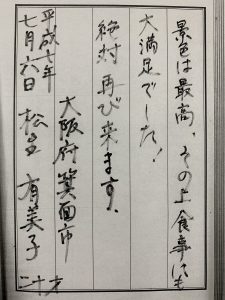 景色は最高、その上食事にも
大満足でした!
絶対再び来ます、
大阪府箕面市
平成七年
七月六日 松室 有美子
二十才